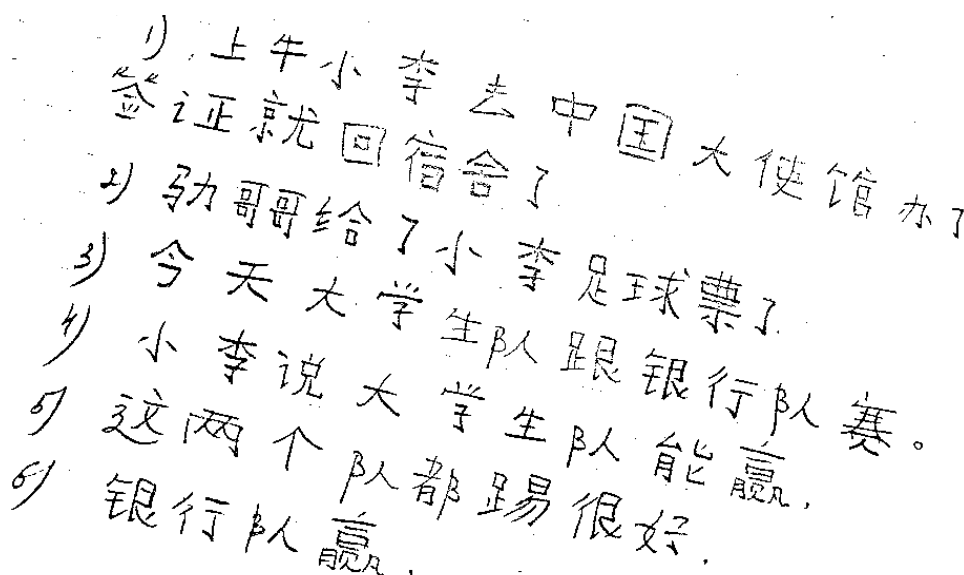 1) 上牛小李去中国大使馆办了
签证就回宿舍了
2) 哥哥给了小李足球票了.
3) 今天大学生队跟银行队赛。
4) 小李说大学生队能赢.
5) 这两个队都踢很好.
6) 银行队赢.